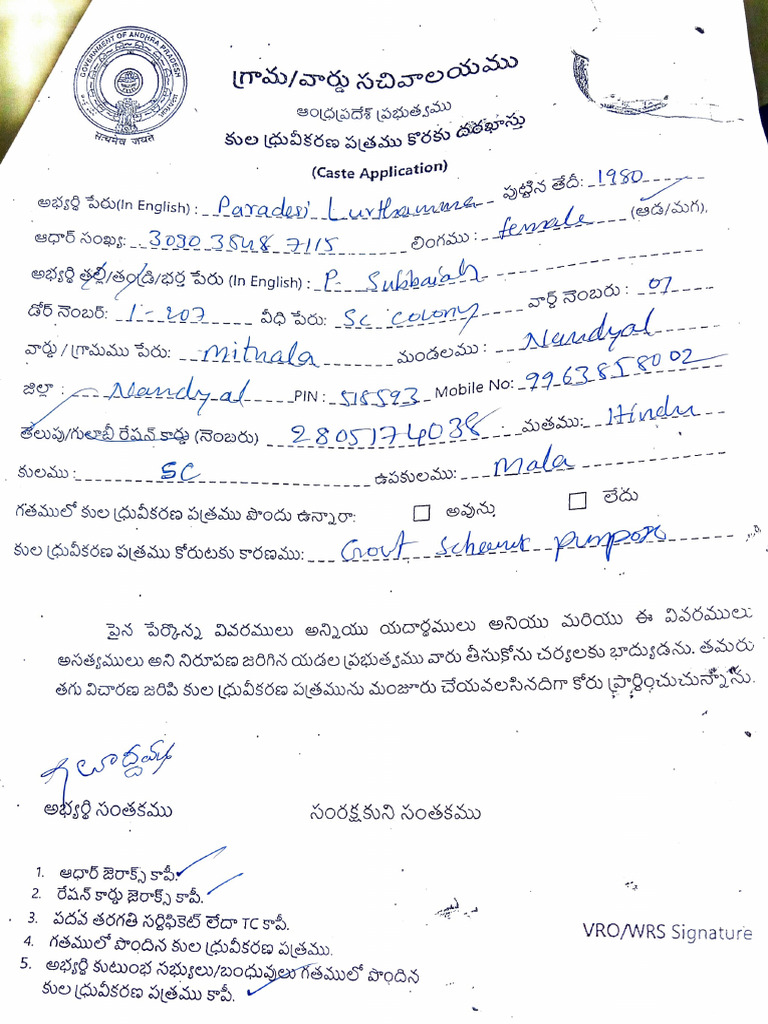 GOVERNMENT OF ANDHRA PRADESH
सत्यमेव जयते
గ్రామ/వార్డు సచివాలయము
ఆంధ్రప్రదేశ్ ప్రభుత్వము
కుల ధ్రువీకరణ పత్రము కొరకు దరఖాస్తు
(Caste Application)
అభ్యర్థి పేరు(In English) : Paradesi Lurthamma పుట్టిన తేదీ: 1980
ఆధార్ సంఖ్య: 3090 3548 7115 లింగము : female (ఆడ/మగ).
అభ్యర్థి తల్లి/తండ్రి/భర్త పేరు (In English) : P. Subbaiah
డోర్ నెంబర్: 1-207 వీధి పేరు: SC colony వార్డ్ నెంబరు : 07
వార్డు / గ్రామము పేరు: Mitnala మండలము : Nandyal
జిల్లా : Nandyal PIN : 518593 Mobile No: 9963858002
తెలుపు/గులాబీ రేషన్ కార్డు (నెంబరు) 2805174038 మతము: Hindu
కులము: SC ఉపకులము: Mala
గతములో కుల ధ్రువీకరణ పత్రము పొందు ఉన్నారా: అవును లేదు
కుల ధ్రువీకరణ పత్రము కోరుటకు కారణము: Govt Scheme purpose
పైన పేర్కొన్న వివరములు అన్నియు యదార్థములు అనియు మరియు ఈ వివరములు
అసత్యములు అని నిరూపణ జరిగిన యడల ప్రభుత్వము వారు తీసుకోను చర్యలకు బాధ్యుడను. తమరు
తగు విచారణ జరిపి కుల ధ్రువీకరణ పత్రమును మంజూరు చేయవలసినదిగా కోరు ప్రార్థించుచున్నాను.
అభ్యర్థి సంతకము సంరక్షకుని సంతకము
1. ఆధార్ జెరాక్స్ కాపీ.
2. రేషన్ కార్డు జెరాక్స్ కాపీ.
3. పదవ తరగతి సర్టిఫికెట్ లేదా TC కాపీ.
4. గతములో పొందిన కుల ధ్రువీకరణ పత్రము.
VRO/WRS Signature
5. అభ్యర్థి కుటుంభ సభ్యులు/బంధువులు గతములో పొందిన
కుల ధ్రువీకరణ పత్రము కాపీ.